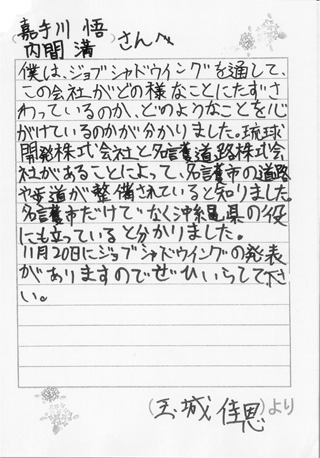 嘉手川 悟
内間 満
さんへ
僕は、ジョブシャドウイングを通して、
この会社がどの様なことにたずさ
わっているのか、どのようなことを心
がけているのかが分かりました。琉球
開発株式会社と名護道路株式会
社があることによって、名護市の道路
や歩道が整備されていると知りました。
名護市だけでなく沖縄県の役
にも立っていると分かりました。
11月20日にジョブシャドウイングの発表
がありますのでぜひいらして下さ
い。
(玉城 佳恩)より